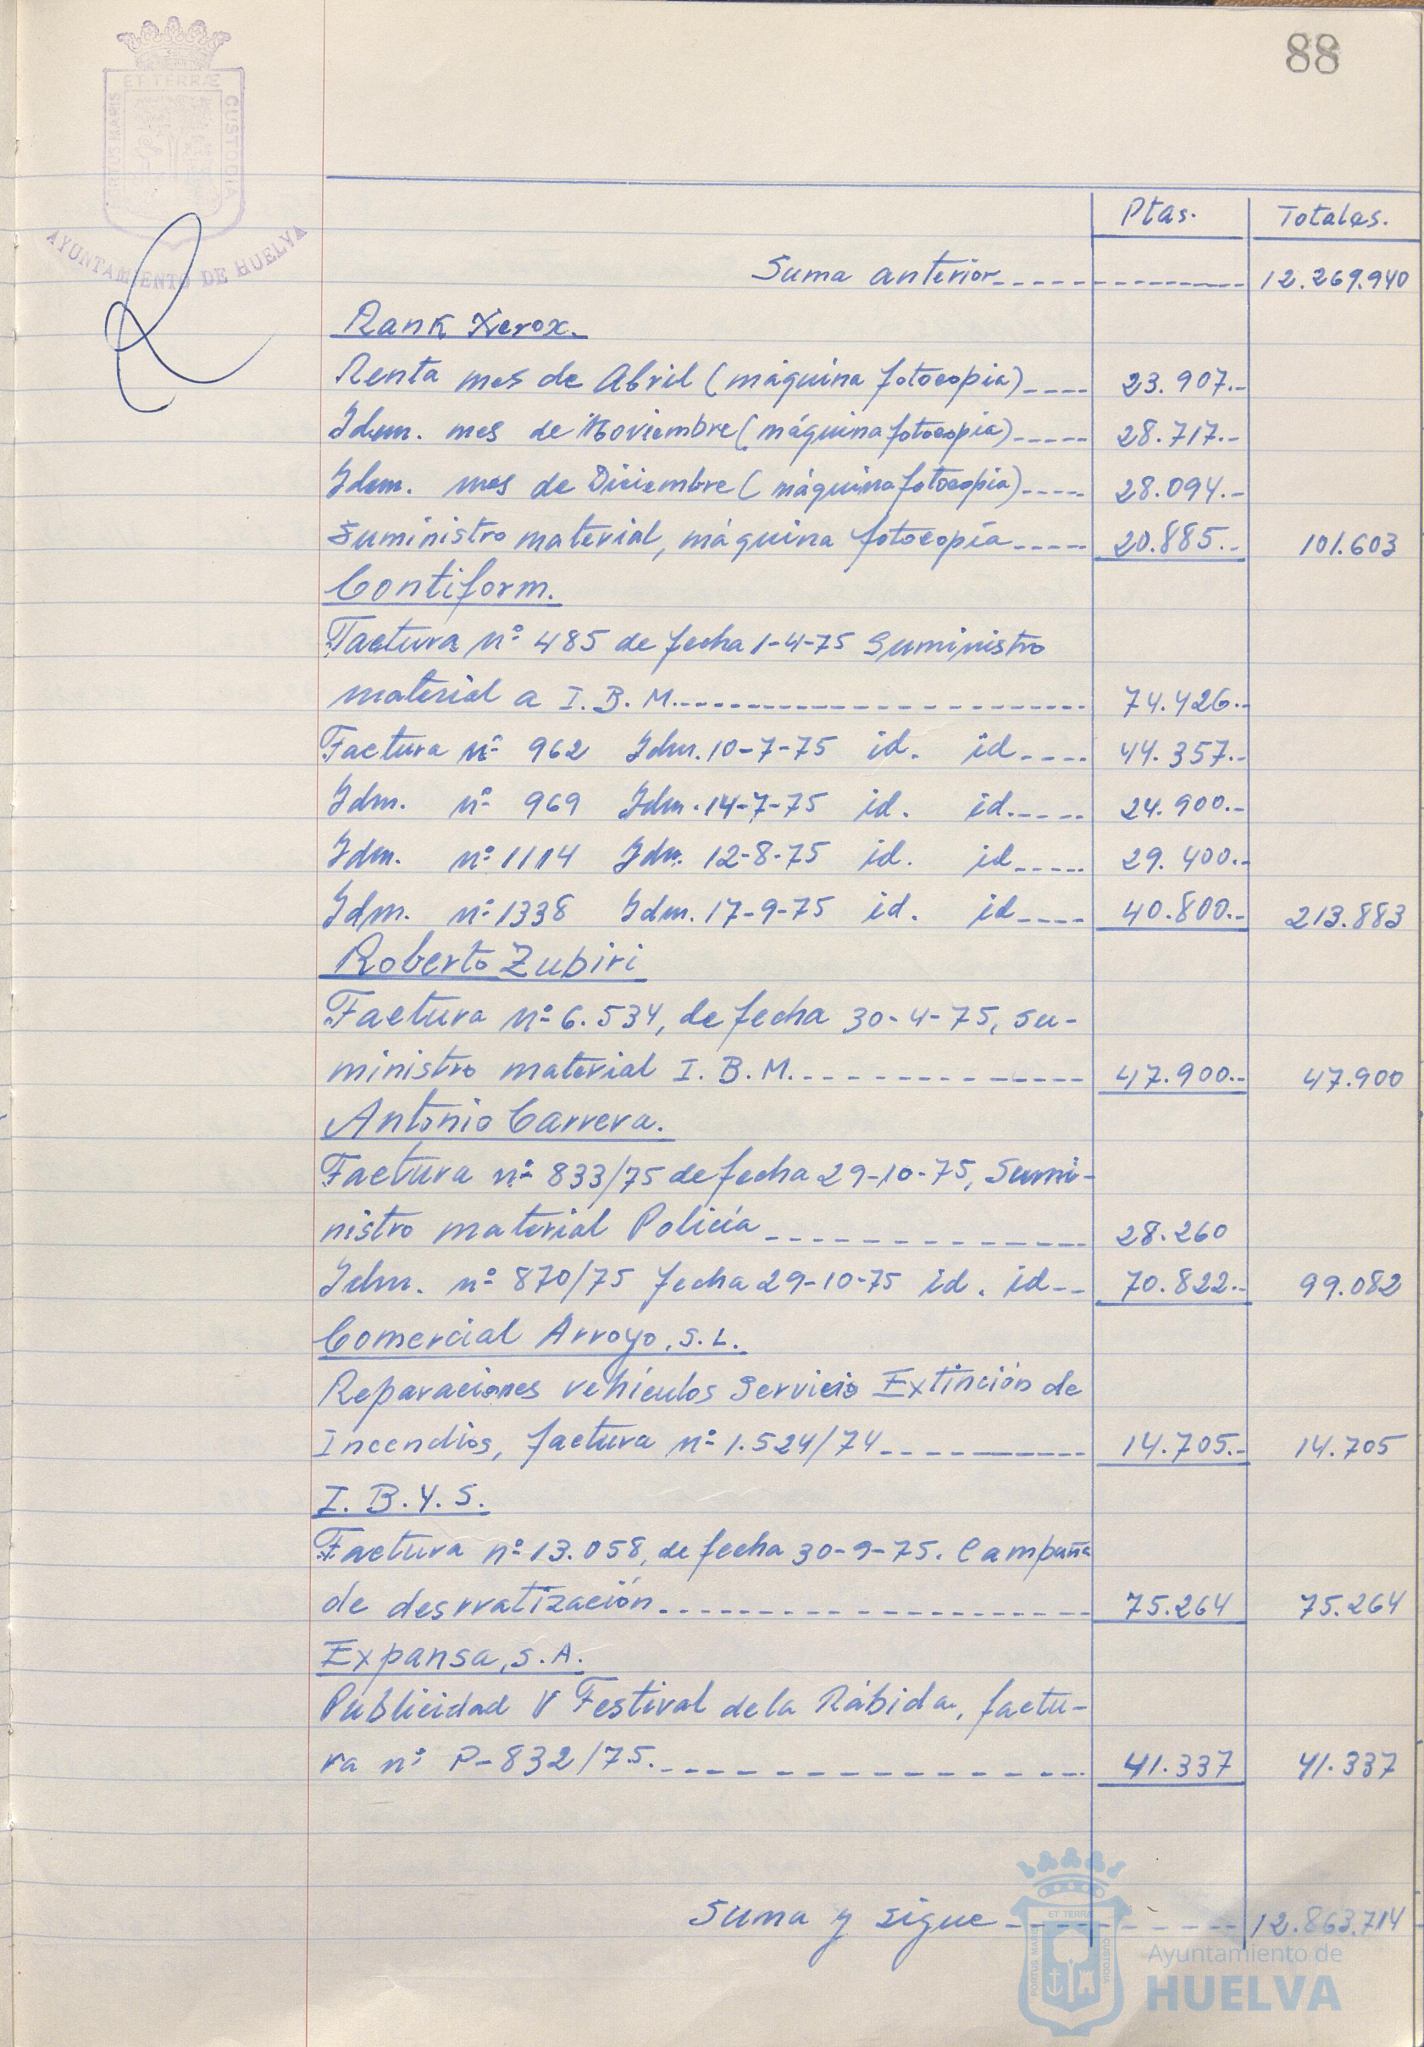 88
PORTUS MARIS
ET TERRÆ
CUSTODIA
AYUNTAMIENTO DE HUELVA
Ptas. Totales.
Suma anterior 12.269.940
Rank Xerox.
Renta mes de Abril (máquina fotocopia) 23.907.-
Idem. mes de Noviembre (máquina fotocopia) 28.717.-
Idem. mes de Diciembre (máquina fotocopia) 28.094.-
Suministro material, máquina fotocopia 20.885.- 101.603
Contiform.
Factura nº 485 de fecha 1-4-75 Suministro
material a I.B.M. 74.426.-
Factura nº 962 Idm. 10-7-75 id. id 44.357.-
Idm. nº 969 Idm. 14-7-75 id. id. 24.900.-
Idm. nº 1114 Idm. 12-8-75 id. id 29.400.-
Idm. nº 1338 Idm. 17-9-75 id. id 40.800.- 213.883
Roberto Zubiri
Factura nº 6.534, de fecha 30-4-75, su-
ministro material I.B.M. 47.900.- 47.900
Antonio Carrera.
Factura nº 833/75 de fecha 29-10-75, Sumi-
nistro material Policía 28.260
Idm. nº 870/75 fecha 29-10-75 id. id 70.822.- 99.082
Comercial Arroyo, S.L.
Reparaciones vehículos Servicio Extinción de
Incendios, factura nº 1.524/74 14.705.- 14.705
I.B.Y.S.
Factura nº 13.058, de fecha 30-9-75. Campaña
de desrratización 75.264 75.264
Expansa, S.A.
Publicidad V Festival de la Rábida, factu-
ra nº P-832/75. 41.337 41.337
Suma y sigue 12.863.714
PORTUS MARIS
ET TERRÆ
CUSTODIA
Ayuntamiento de
HUELVA